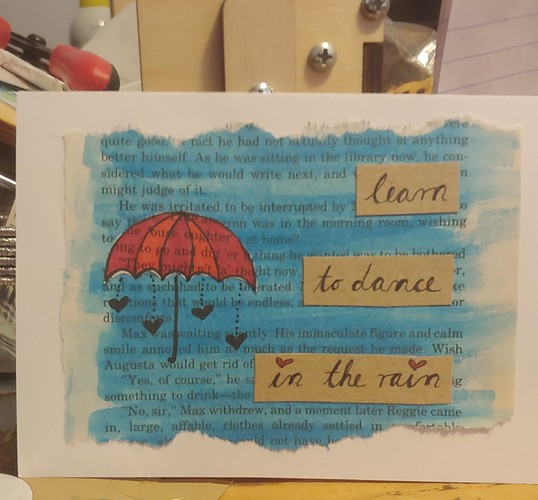 quite good, fact he had not actually thought of anything
better himself. As he was sitting in the library now, he con-
sidered what he would write next, and
might judge of it.
learn
He was irritated to be interrupted by
say was in the morning room, wishing
to at home?
to go and thing he wanted was to be bothered
"They might n't now,
to dance
and as such had to be tolerated.
that would be endless,
discomforts.
Max was waiting silently. His immaculate figure and calm
smile annoyed him as much as the request he made. Wish
Augusta would get rid of
in the rain
"Yes, of course," he
something to drink—the
"No, sir," Max withdrew, and a moment later Reggie came
in, large, affable, clothes already settled in
could not have